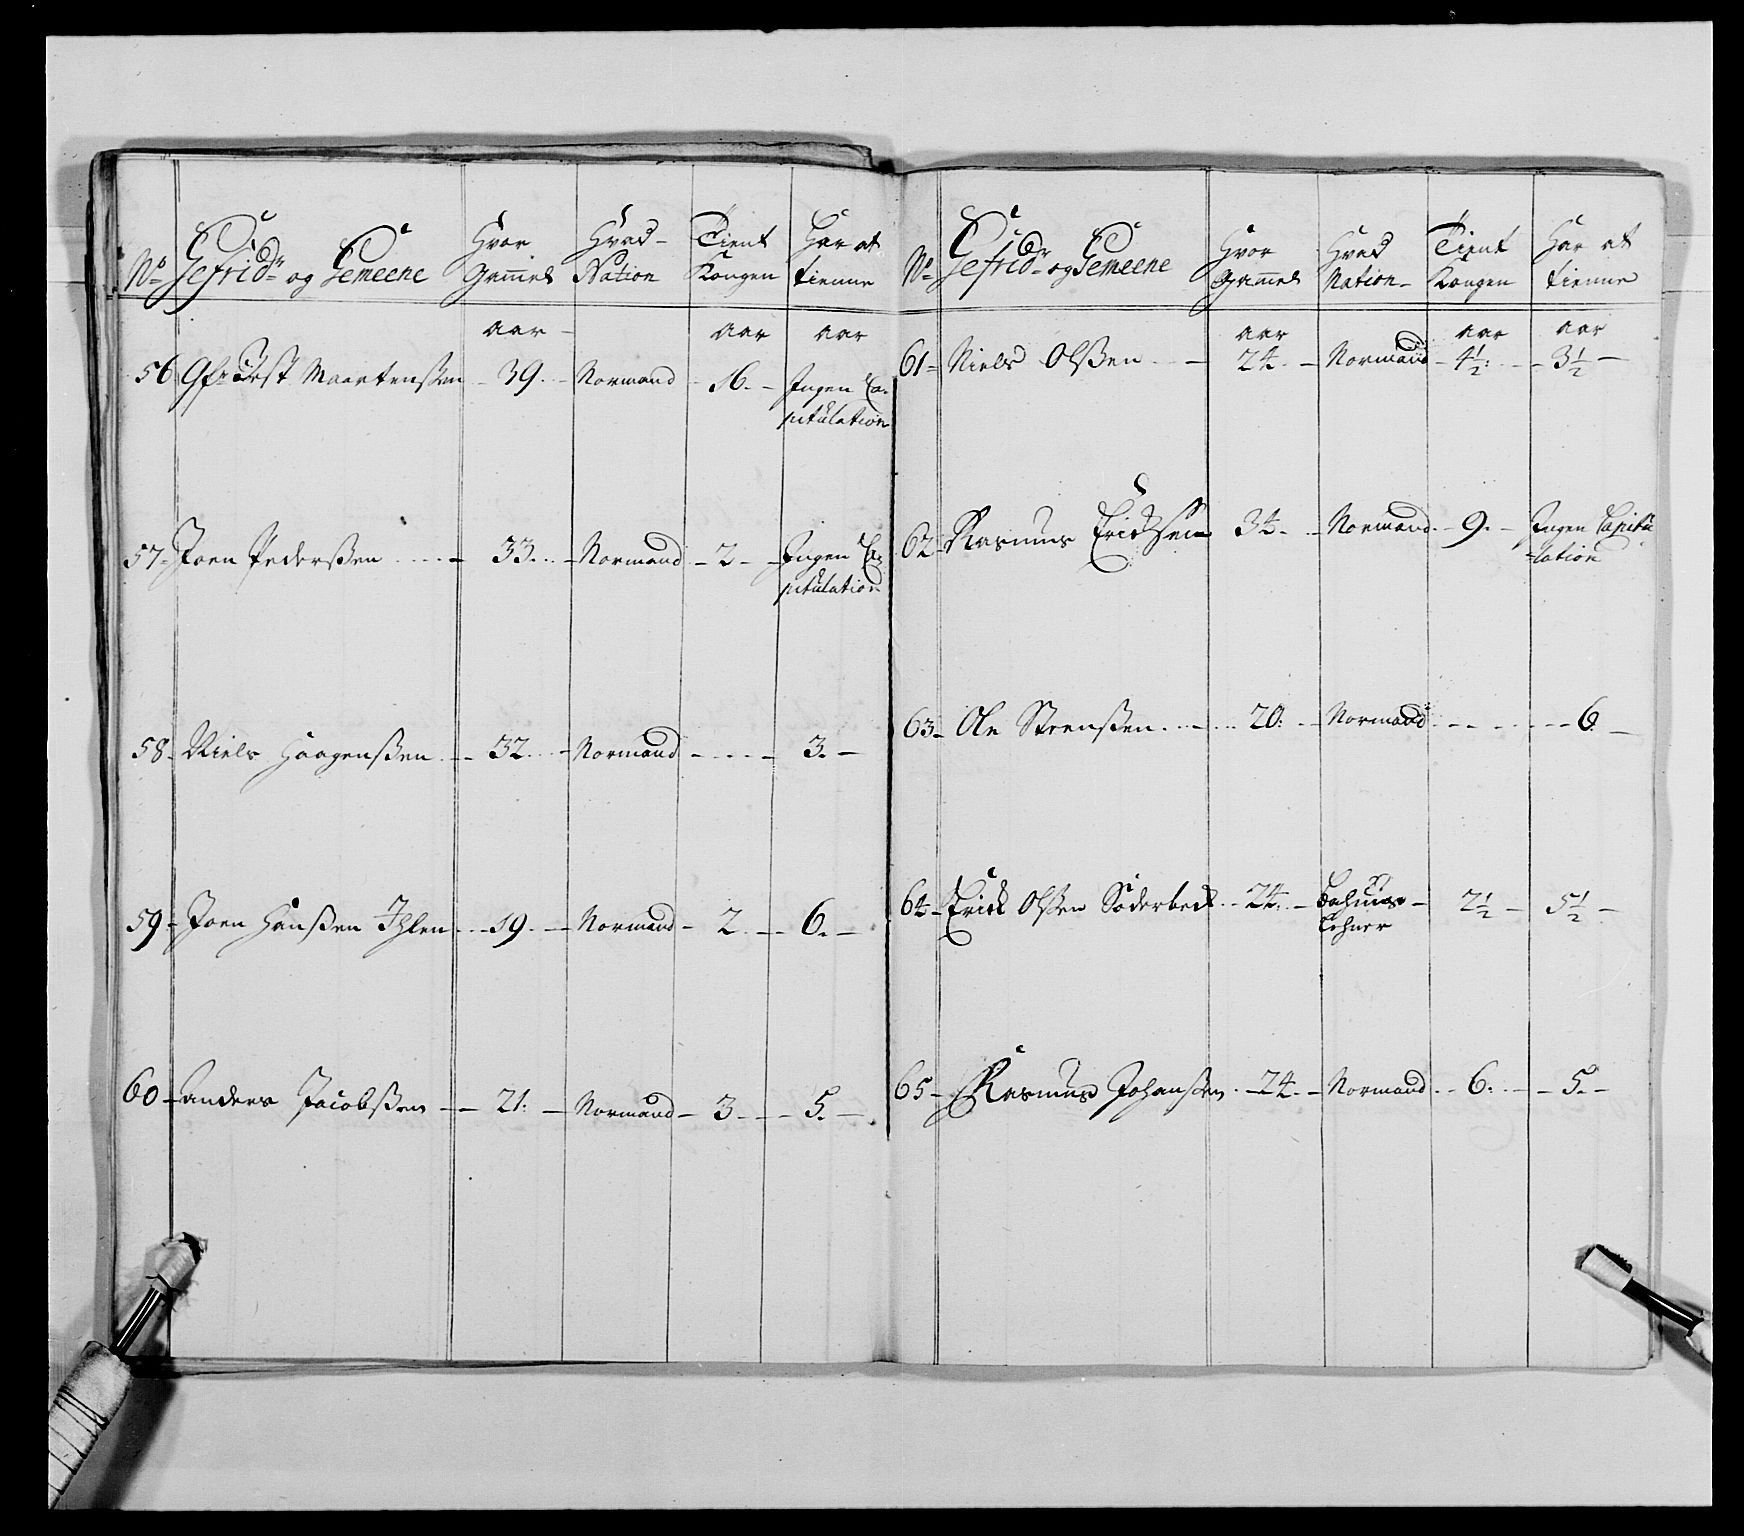 No Gefrid:r og Gemeene Hvor Gammel Hvad Nation Tient Kongen Har at tienne
aar aar aar
56 Gfr Maartenßen 39. Normand 16. Ingen Ca-
pitulation
57 Joen Pederßen 33. Normand 2 Ingen Ca-
pitulation
58 Niels Haagenßen 32. Normand 3.
59 Joen Hanßen Ihlen 19. Normand 2. 6.
60 Anders Jacobßen 21. Normand 3 5.
No Gefrid:r og Gemeene Hvor Gammel Hvad Nation Tient Kongen Har at tienne
aar aar aar
61 Niels Olßen 24. Normand 4½ 3½
62 Rasmus Erichsen 34. Normand 9. Ingen Capitu
-lation
63 Ole Steenßen 20. Normand 6.
64 Erick Olßen Söderbeck 24. Bahuus-
Lehner 2½ 5½
65 Rasmus Johanßen 24. Normand 6. 5.